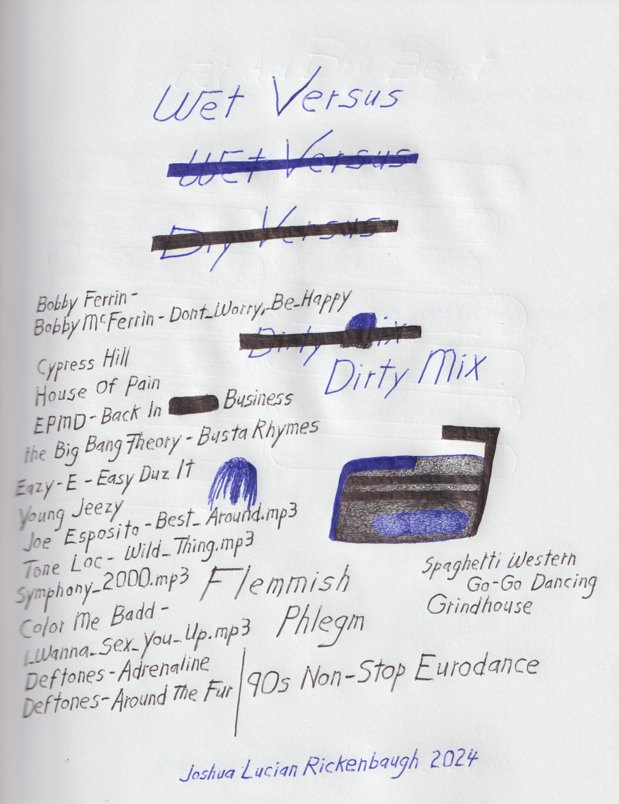 Wet Versus
Wet Versus
Dry Versus
Bobby Ferrin-
Bobby McFerrin - Dont_Worry,_Be_Happy
Dirty Mix
Cypress Hill
House Of Pain
EPMD - Back In Business
the Big Bang Theory - Busta Rhymes
Eazy-E - Easy Duz It
Young Jeezy
Joe Esposito - Best_Around.mp3
Tone Loc - Wild_Thing.mp3
Symphony_2000.mp3
Color Me Badd -
i_Wanna_Sex_You_Up.mp3
Deftones - Adrenaline
Deftones - Around The Fur
Dirty Mix
Flemmish
Phlegm
Spaghetti Western
Go-Go Dancing
Grindhouse
90s Non-Stop Eurodance
Joshua Lucian Rickenbaugh 2024